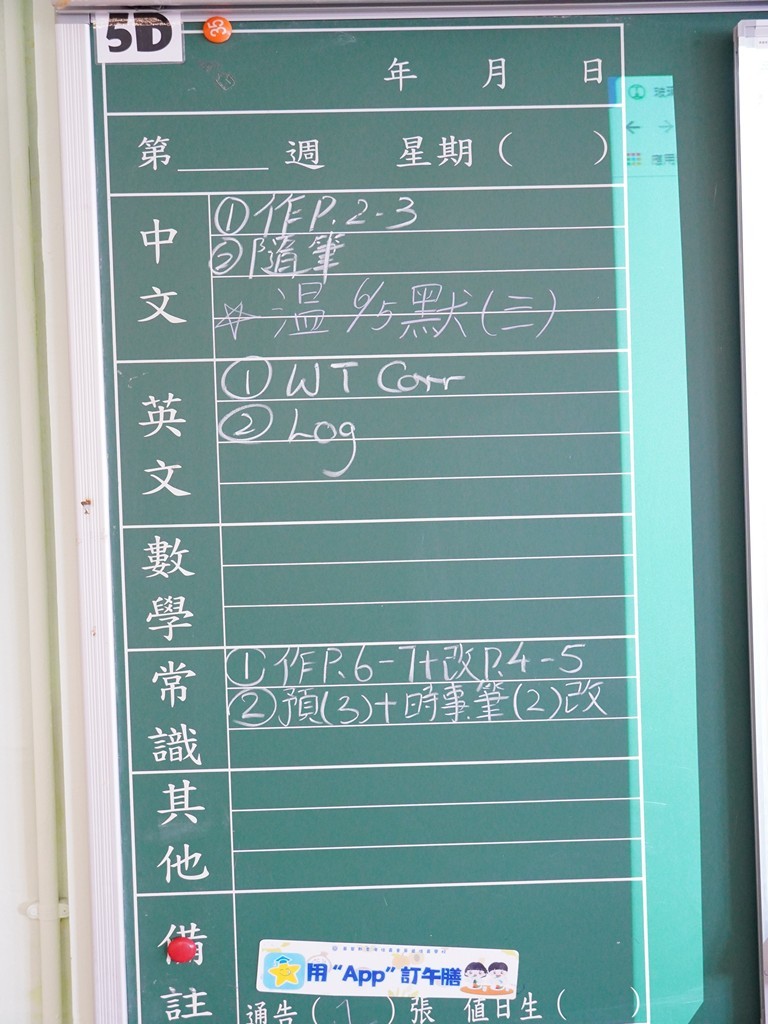 5D
35
年 月 日
第____週 星期( )
中文
①作P.2-3
②隨筆
☆溫 6/5默(三)
英文
① WT Corr
② Log
數學
常識
①作P.6-7+改P.4-5
②預(3)+時事筆(2)改
其他
備註
用“App”訂午膳
通告( 1 )張 值日生( )
應用